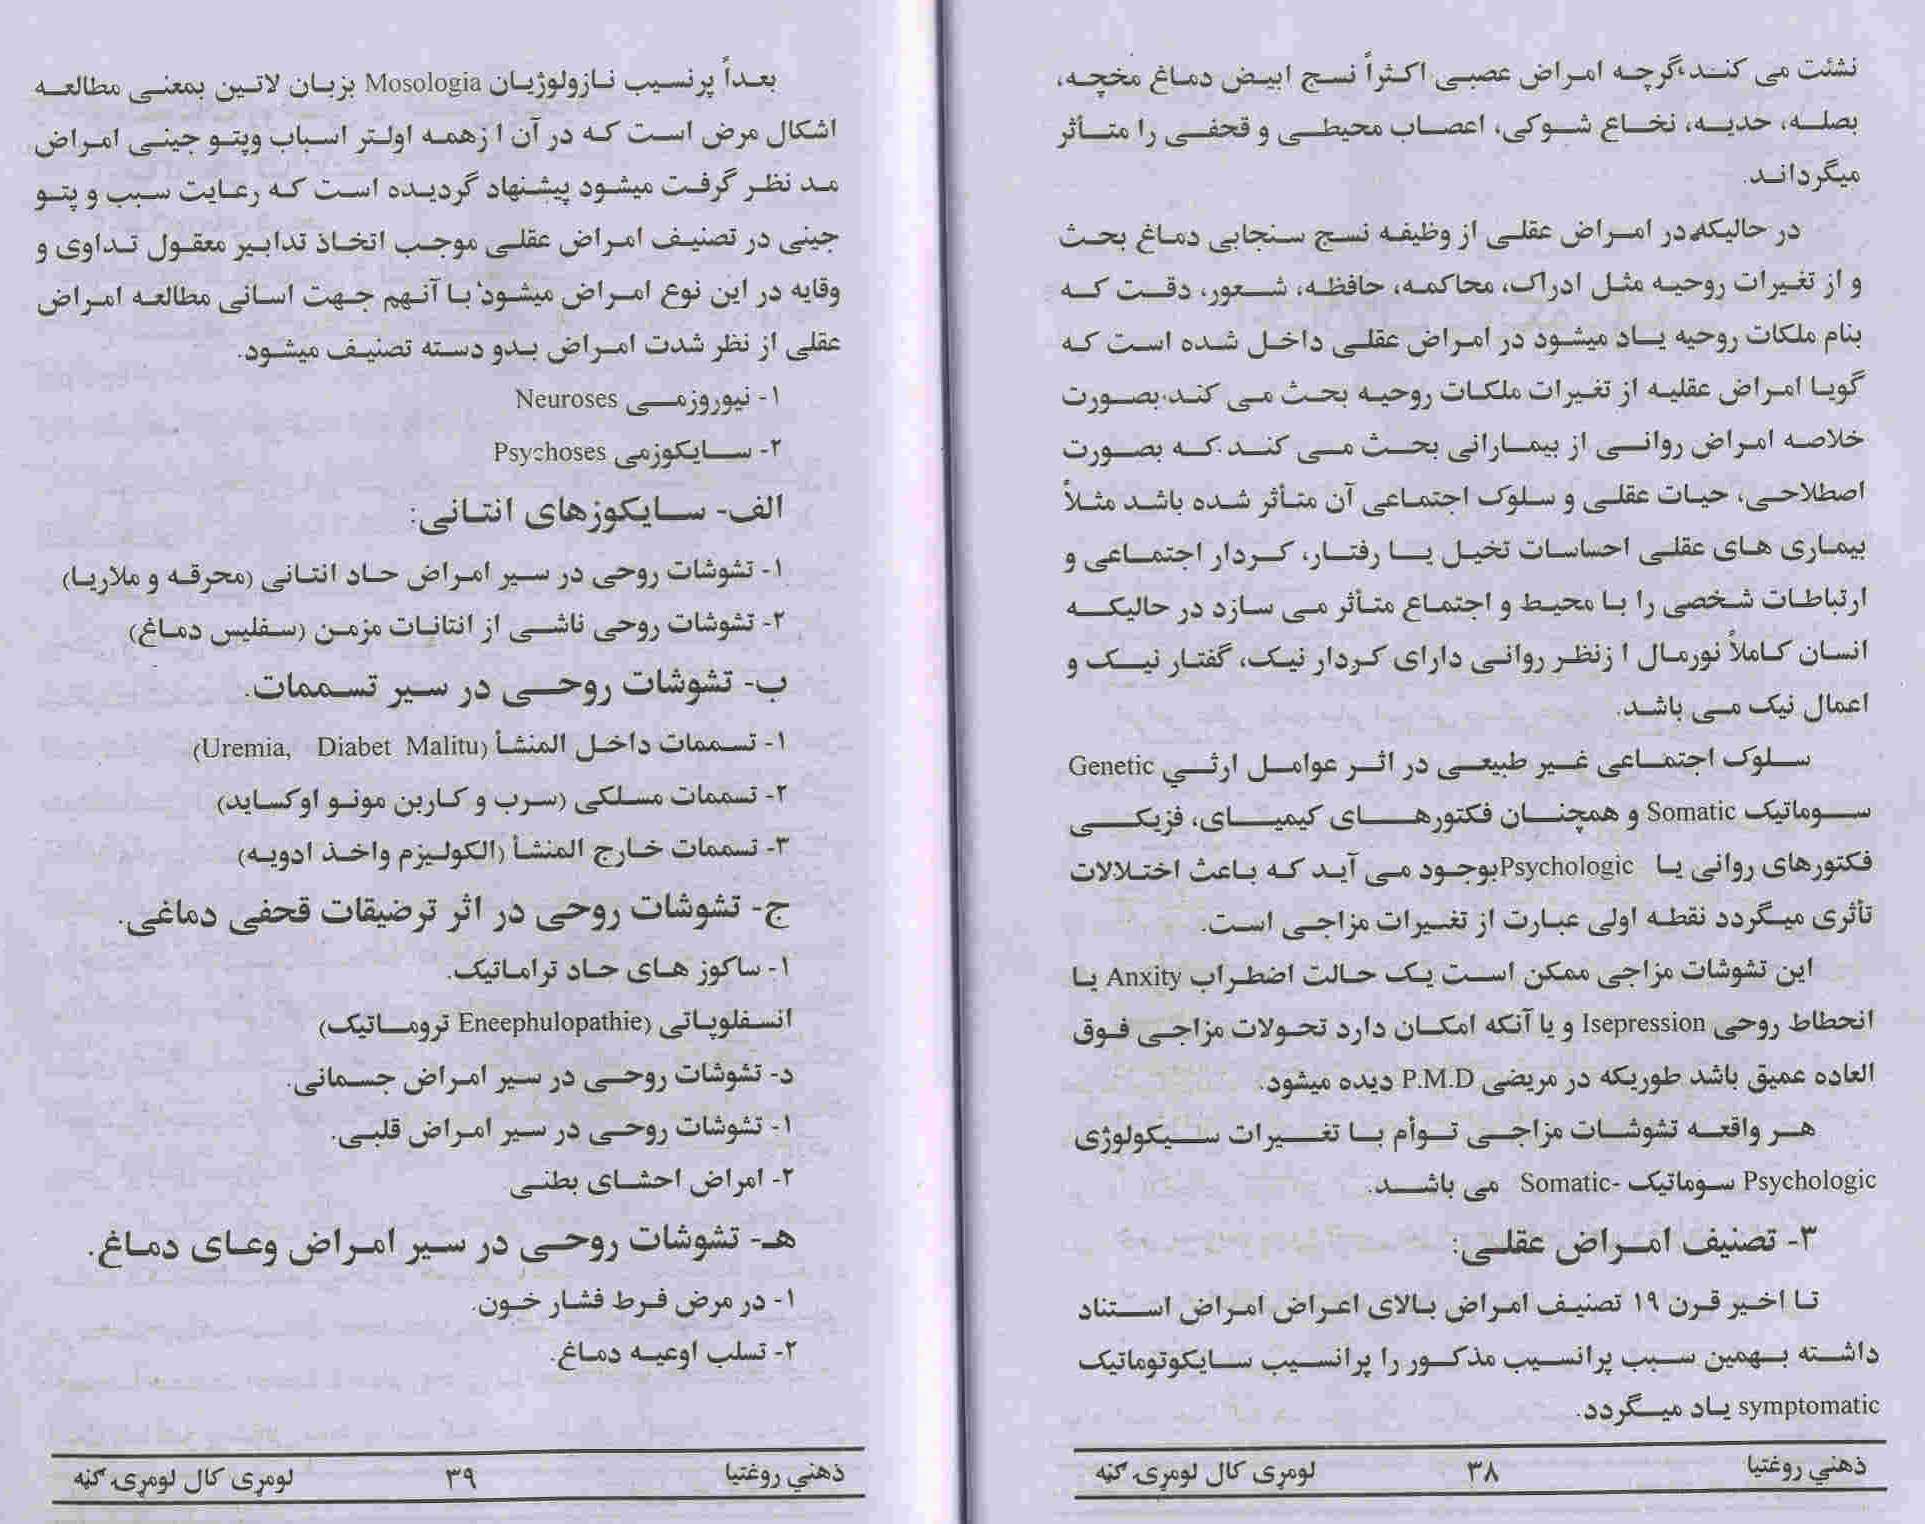 نشئت می کند، گرچه امراض عصبی اکثراً نسج ابیض دماغ مخچه،
بصله، حدیه، نخاع شوکی، اعصاب محیطی و قحفی را متأثر
میگرداند.
در حالیکه در امراض عقلی از وظیفه نسج سنجابی دماغ بحث
و از تغیرات روحیه مثل ادراک، محاکمه، حافظه، شعور، دقت که
بنام ملکات روحیه یاد میشود در امراض عقلی داخل شده است که
گویا امراض عقلیه از تغیرات ملکات روحیه بحث می کند، بصورت
خلاصه امراض روانی از بیمارانی بحث می کند. که بصورت
اصطلاحی، حیات عقلی و سلوک اجتماعی آن متأثر شده باشد مثلاً
بیماری های عقلی احساسات تخیل یا رفتار، کردار اجتماعی و
ارتباطات شخصی را با محیط و اجتماع متأثر می سازد در حالیکه
انسان کاملاً نورمال ا زنظر روانی دارای کردار نیک، گفتار نیک و
اعمال نیک می باشد.
سلوک اجتماعی غیر طبیعی در اثر عوامل ارثي Genetic
سوماتیک Somatic و همچنان فکتورهای کیمیای، فزیکی
فکتورهای روانی یا Psychologic بوجود می آید که باعث اختلالات
تأثری میگردد نقطه اولی عبارت از تغیرات مزاجی است.
این تشوشات مزاجی ممکن است یک حالت اضطراب Anxity یا
انحطاط روحی Isepression و یا آنکه امکان دارد تحولات مزاجی فوق
العاده عمیق باشد طوریکه در مریضی P.M.D دیده میشود.
هر واقعه تشوشات مزاجی توأم با تغیرات سیکولوژی
Psychologic سوماتیک -Somatic می باشد.
۳- تصنیف امراض عقلی:
تا اخیر قرن ۱۹ تصنیف امراض بالای اعراض امراض استناد
داشته بهمین سبب پرانسیب مذکور را پرانسیب سایکوتوماتیک
symptomatic یاد میگردد.
ذهني روغتیا ۳۸ لومړی کال لومړۍ ګڼه
بعداً پرنسیب نازولوژیان Mosologia بزبان لاتین بمعنی مطالعه
اشکال مرض است که در آن ا زهمه اولتر اسباب وپتو جینی امراض
مد نظر گرفت میشود پیشنهاد گردیده است که رعایت سبب و پتو
جینی در تصنیف امراض عقلی موجب اتخاذ تدابیر معقول تداوی و
وقایه در این نوع امراض میشود، با آنهم جهت اسانی مطالعه امراض
عقلی از نظر شدت امراض بدو دسته تصنیف میشود.
۱- نیوروزمی Neuroses
۲- سایکوزمی Psychoses
الف- سایکوزهای انتانی:
۱- تشوشات روحی در سیر امراض حاد انتانی (محرقه و ملاریا)
۲- تشوشات روحی ناشی از انتانات مزمن (سفلیس دماغ)
ب- تشوشات روحی در سیر تسممات.
۱- تسممات داخل المنشأ (Uremia, Diabet Malitu)
۲- تسممات مسلکی (سرب و کاربن مونو اوکساید)
۳- تسممات خارج المنشأ (الکولیزم واخذ ادویه)
ج- تشوشات روحی در اثر ترضیقات قحفی دماغی.
۱- ساکوز های حاد تراماتیک.
انسفلوپاتی (Eneephulopathie تروماتیک)
د- تشوشات روحی در سیر امراض جسمانی.
۱- تشوشات روحی در سیر امراض قلبی.
۲- امراض احشای بطنی
هـ- تشوشات روحی در سیر امراض وعای دماغ.
۱- در مرض فرط فشار خون.
۲- تسلب اوعیه دماغ.
ذهني روغتیا ۳۹ لومړی کال لومړۍ ګڼه